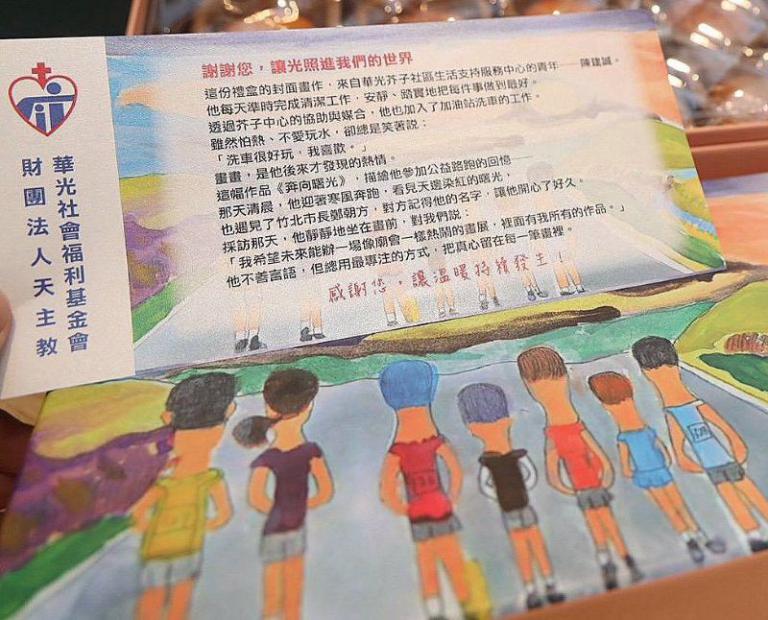 財團法人天主教
華光社會福利基金會
謝謝您，讓光照進我們的世界
這份禮盒的封面畫作，來自華光芥子社區生活支持服務中心的青年——陳建誠。
他每天準時完成清潔工作，安靜、踏實地把每件事做到最好。
透過芥子中心的協助與媒合，他也加入了加油站洗車的工作。
雖然怕熱、不愛玩水，卻總是笑著說：
「洗車很好玩，我喜歡。」
畫畫，是他後來才發現的熱情。
這幅作品《奔向曙光》，描繪他參加公益路跑的回憶——
那天清晨，他迎著寒風奔跑，看見天邊染紅的曙光，
也遇見了竹北市長鄭朝方，對方記得他的名字，讓他開心了好久。
採訪那天，他靜靜地坐在畫前，對我們說：
「我希望未來能辦一場像廟會一樣熱鬧的畫展，裡面有我所有的作品。」
他不善言語，但總用最專注的方式，把真心留在每一筆畫裡。
感謝您，讓溫暖持續發生！